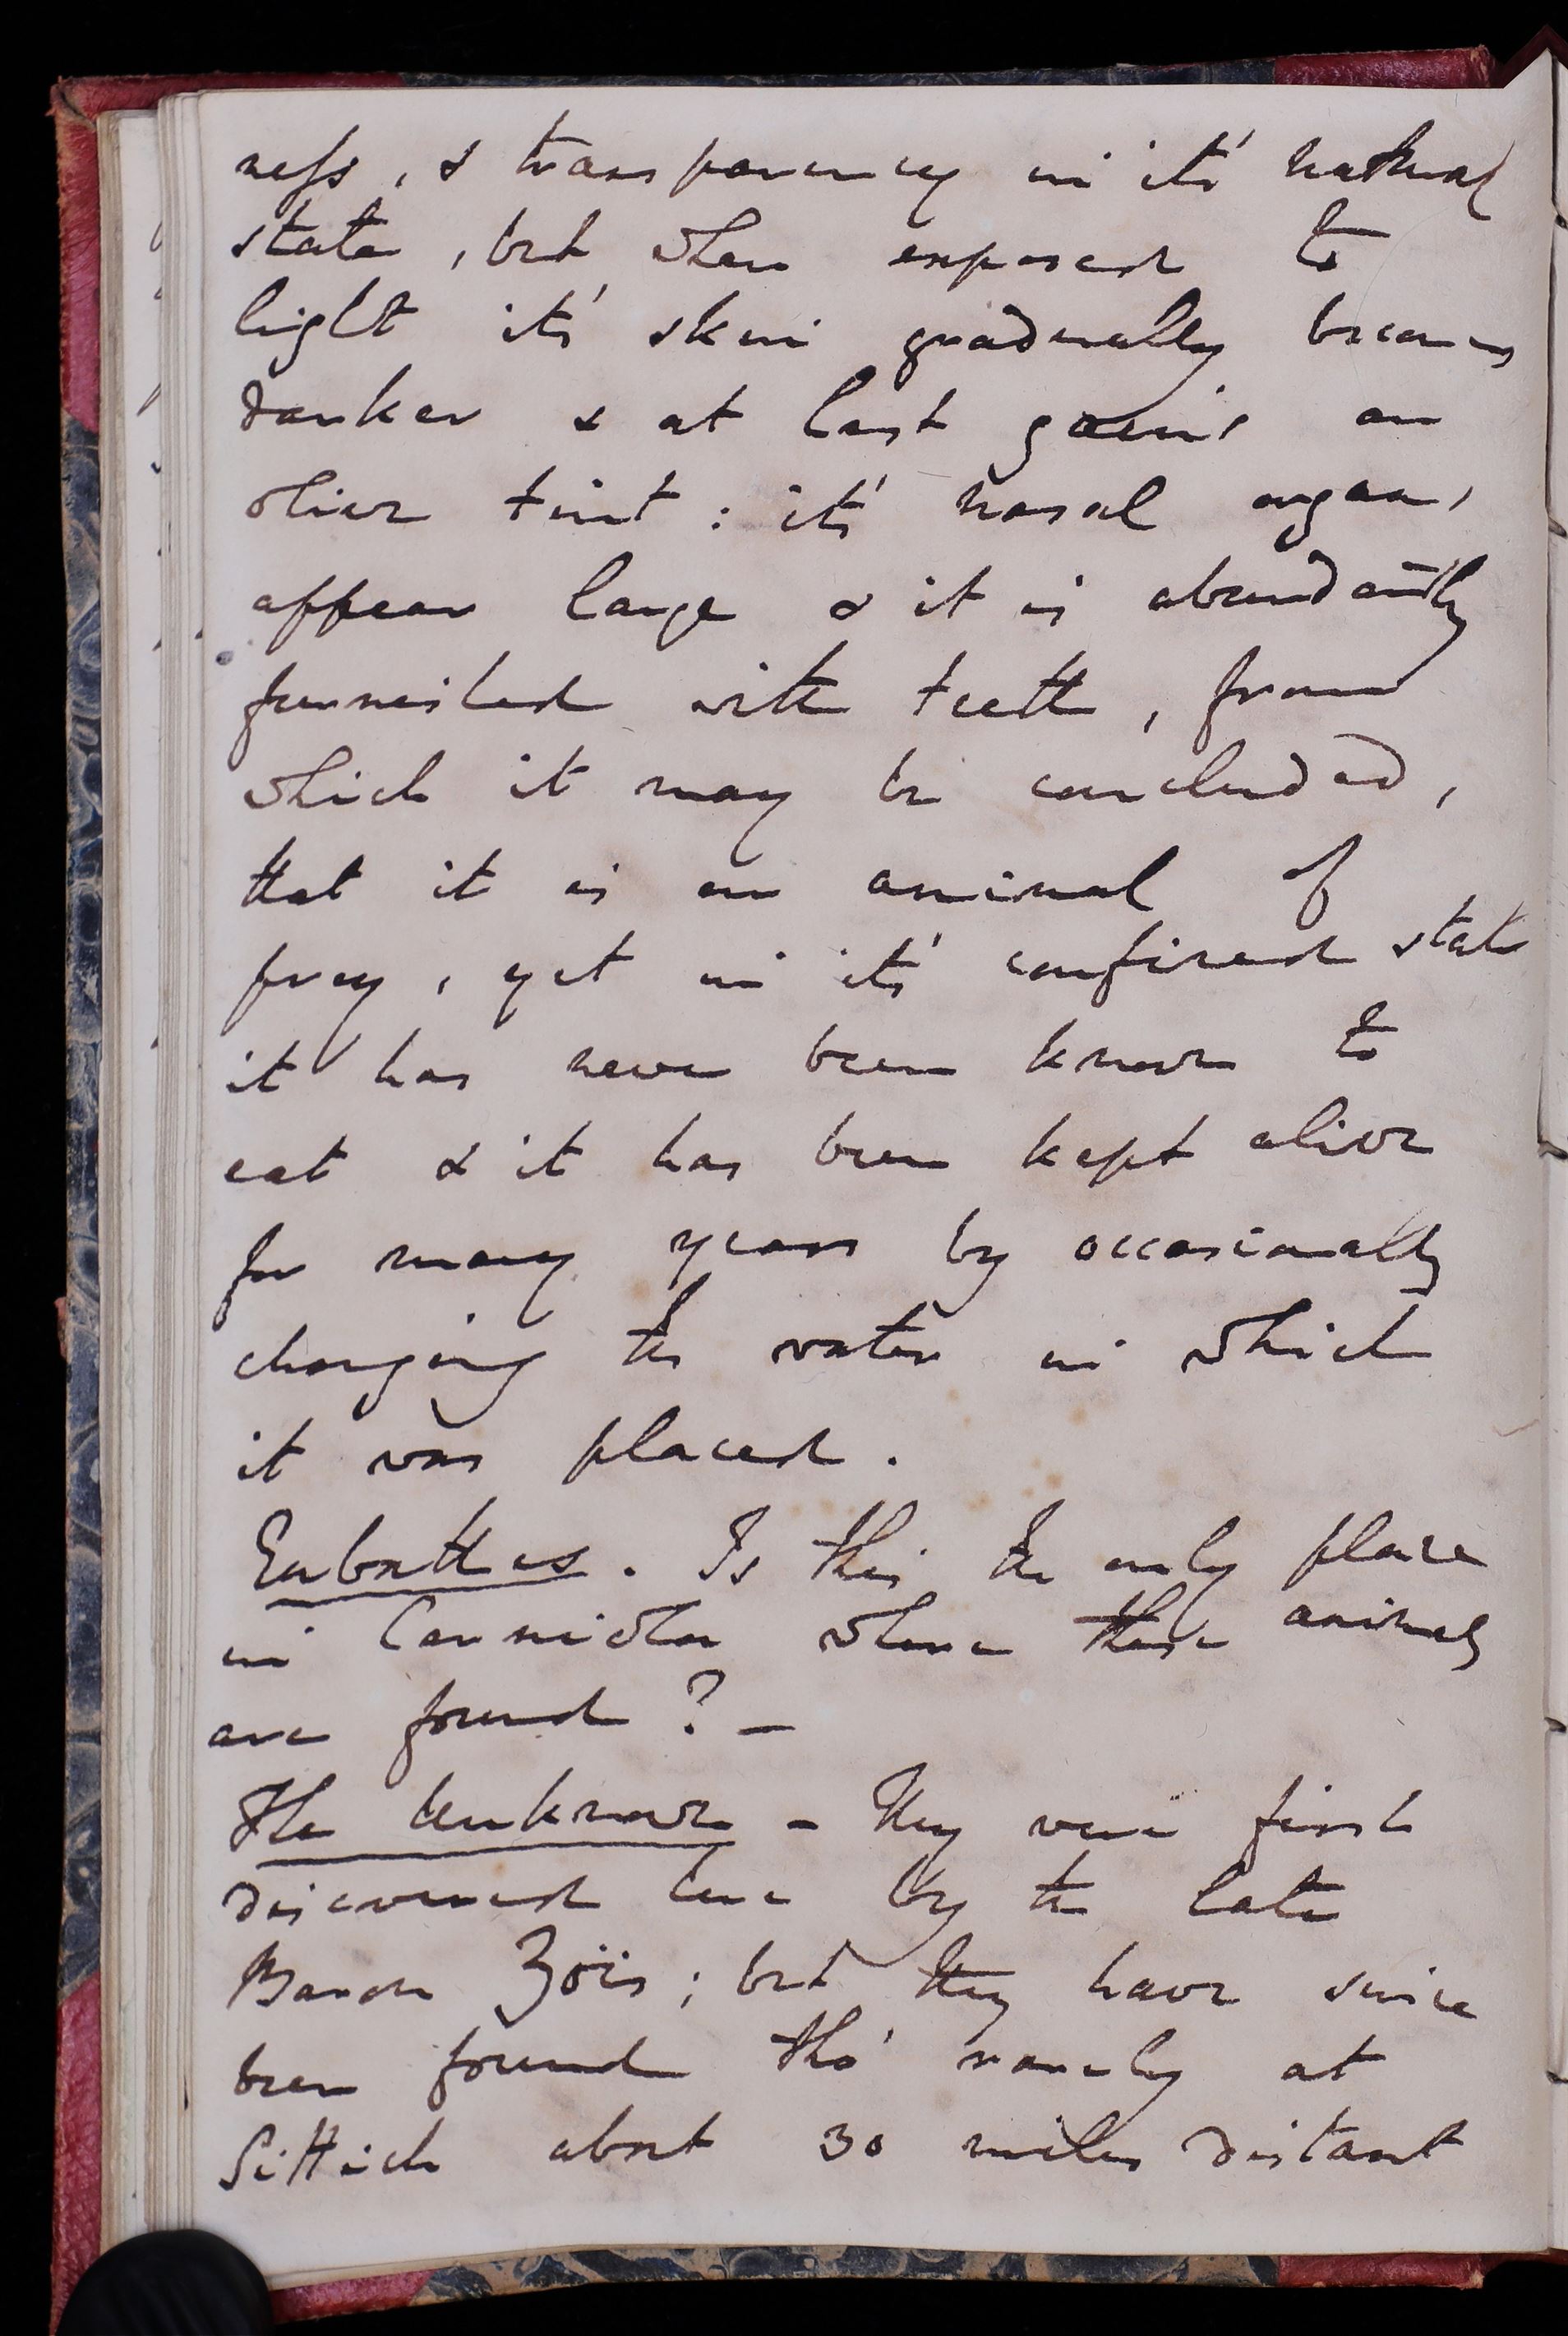 ness, & transparency in it's natural
state, but when exposed to
light it's skin gradually becomes
darker & at last gains an
olive tint: it's nasal organs
appear large & it is abundantly
furnished with teeth, from
which it may be concluded,
that it is an animal of
prey, yet in it's confined state
it has never been known to
eat & it has been kept alive
for many years by occasionally
changing the water in which
it was placed.
Eubathes. Is this the only place
in Carniola where these animals
are found? –
The Unknown – They were first
discovered here by the late
Baron Zöis; but they have since
been found tho' rarely at
Sittich about 30 miles distant